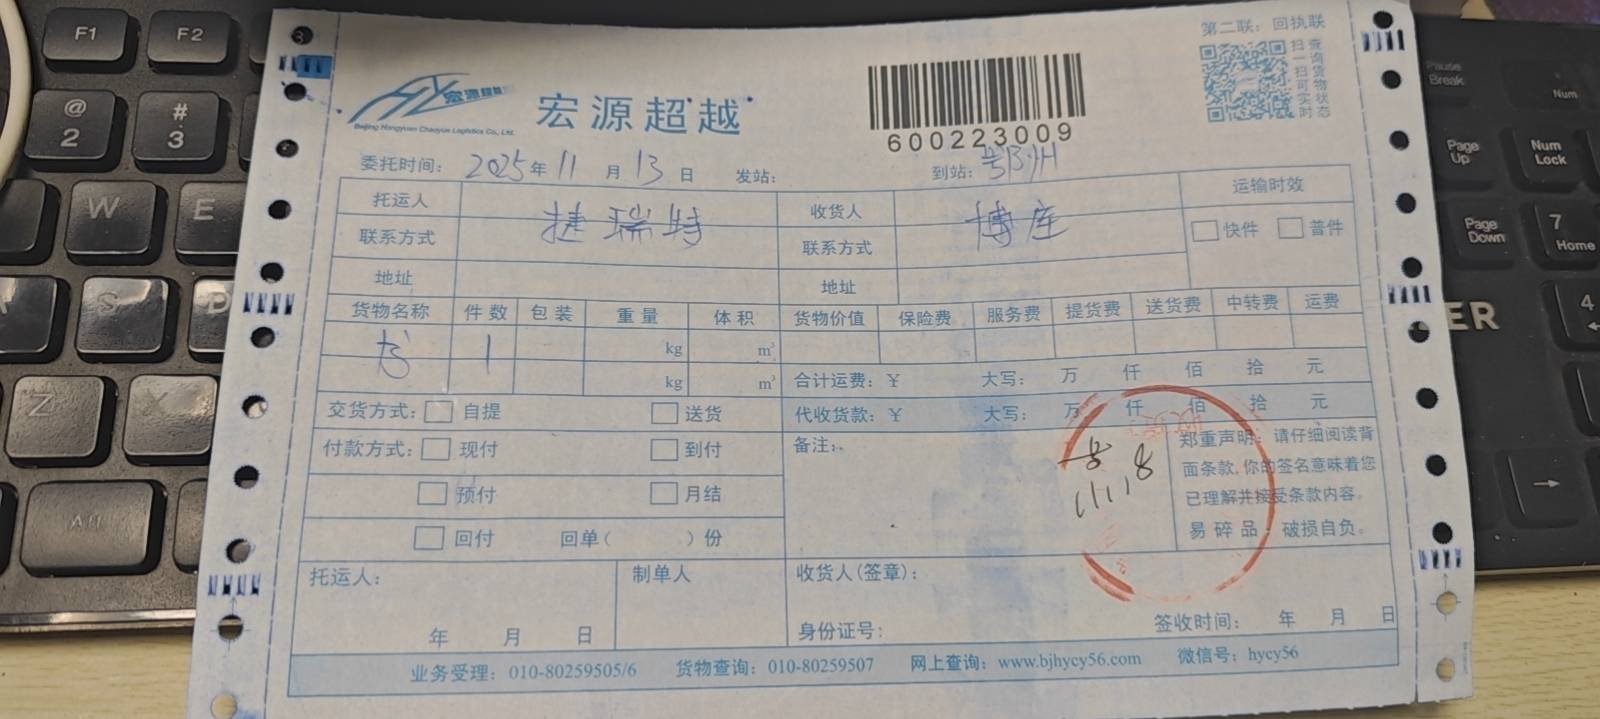 第二联：回执联
扫一扫可实时
查询货物状态
宏源超越
Beijing Hongyuan Chaoyue Logistics Co., Ltd.
宏源超越
600223009
委托时间：2025年11月13日 发站： 到站：
托运人 捷瑞特 收货人 博库 运输时效
联系方式 联系方式 快件 普件
地址 地址
货物名称 件数 包装 重量 体积 货物价值 保险费 服务费 提货费 送货费 中转费 运费
书 1 kg m³
kg m³ 合计运费：¥ 大写： 万 仟 佰 拾 元
交货方式： 自提 送货 代收货款：¥ 大写： 万 仟 佰 拾 元
付款方式： 现付 到付 备注：
预付 月结
回付 回单（ ）份
郑重声明：请仔细阅读背
面条款,你的签名意味着您
已理解并接受条款内容。
易碎品 破损自负。
11.18
托运人： 制单人 收货人(签章)：
年 月 日 身份证号： 签收时间： 年 月 日
业务受理：010-80259505/6 货物查询：010-80259507 网上查询：www.bjhycy56.com 微信号：hycy56
F1
F2
@
2
#
3
W
E
S
D
Z
X
Alt
Pause
Break
Num
Page
Up
Num
Lock
Page
Down
7
Home
4
ER